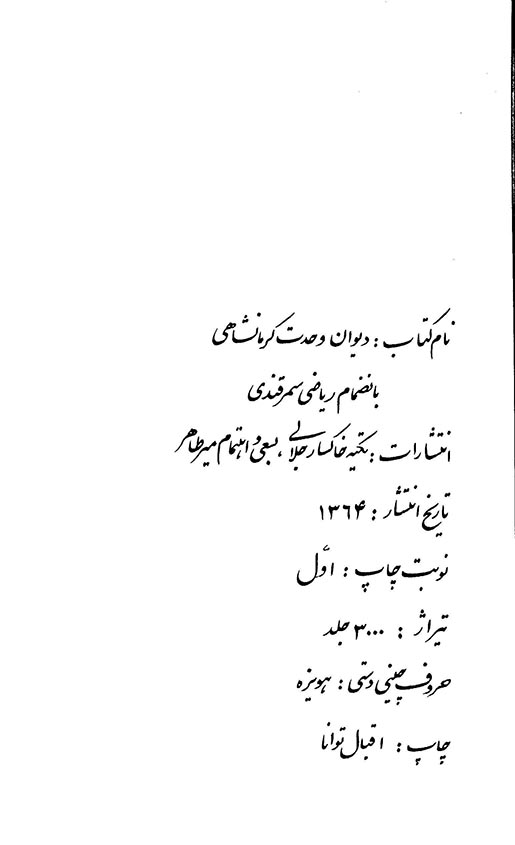 نام کتاب : دیوان وحدت کرمانشاهی
بانضمام ریاضی سمرقندی
انتشارات : تکیه خاکسار جلالی ، بسعی و اهتمام میر طاهر
تاریخ انتشار : ۱۳۶۴
نوبت چاپ : اوّل
تیراژ : ۳۰۰۰ جلد
حروف چینی دستی : هویزه
چاپ : اقبال توانا